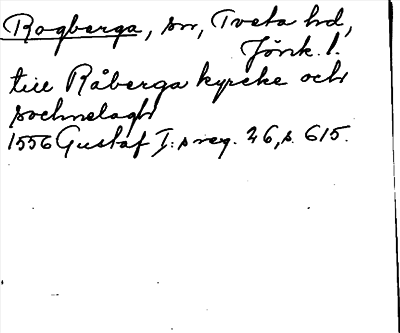 Rogberga, sn, Tveta hd,
Jönk. l.
till Råberga kyrcke och
sochnelagh
1556 Gustaf I:s reg. 26, s. 615.